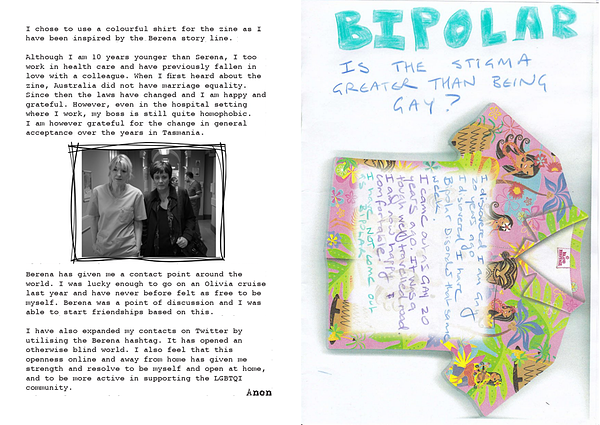 I chose to use a colourful shirt for the zine as I
have been inspired by the Berena story line.
Although I am 10 years younger than Serena, I too
work in health care and have previously fallen in
love with a colleague. When I first heard about the
zine, Australia did not have marriage equality.
Since then the laws have changed and I am happy and
grateful. However, even in the hospital setting
where I work, my boss is still quite homophobic.
I am however grateful for the change in general
acceptance over the years in Tasmania.
Berena has given me a contact point around the
world. I was lucky enough to go on an Olivia cruise
last year and have never before felt as free to be
myself. Berena was a point of discussion and I was
able to start friendships based on this.
I have also expanded my contacts on Twitter by
utilising the Berena hashtag. It has opened an
otherwise blind world. I also feel that this
openness online and away from home has given me
strength and resolve to be myself and open at home,
and to be more active in supporting the LGBTQI
community.
Anon
BIPOLAR
IS THE STIGMA
GREATER THAN BEING
GAY?
I discovered I am Gay
20 years ago
I discovered I have
Bipolar Disorder
I came out as GAY 20
years ago. It was a
tough well travelled road
comfortable
I must NOT come out
as BIPOLAR